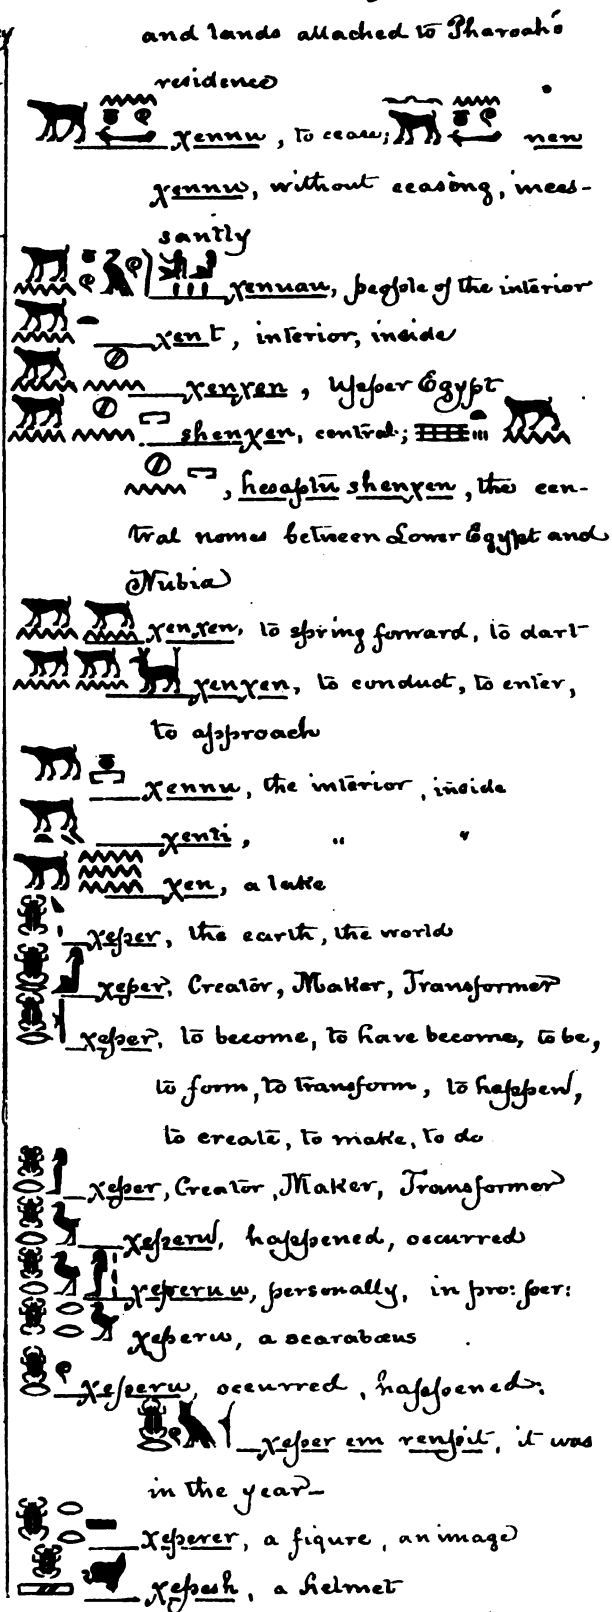 and lands attached to Pharoah's
residence
χennu, to cease; nen
χennu, without ceasing, inces-
santly
χenuau, people of the interior
χent, interior, inside
χenχen, Upper Egypt
shenχen, central;
, hesaptu shenχen, the cen-
tral nomes between Lower Egypt and
Nubia
χenχen, to spring forward, to dart
χenχen, to conduct, to enter,
to approach
χennu, the interior, inside
χenti, " "
χen, a lake
χeper, the earth, the world
χeper, Creator, Maker, Transformer
χeper, to become, to have become, to be,
to form, to transform, to happen,
to create, to make, to do
χeper, Creator, Maker, Transformer
χeperu, happened, occurred
χeperuu, personally, in pro: per:
χeperu, a scarabæus
χeperu, occurred, happened:
χeper em renpit, it was
in the year—
χeperer, a figure, an image
χepesh, a helmet